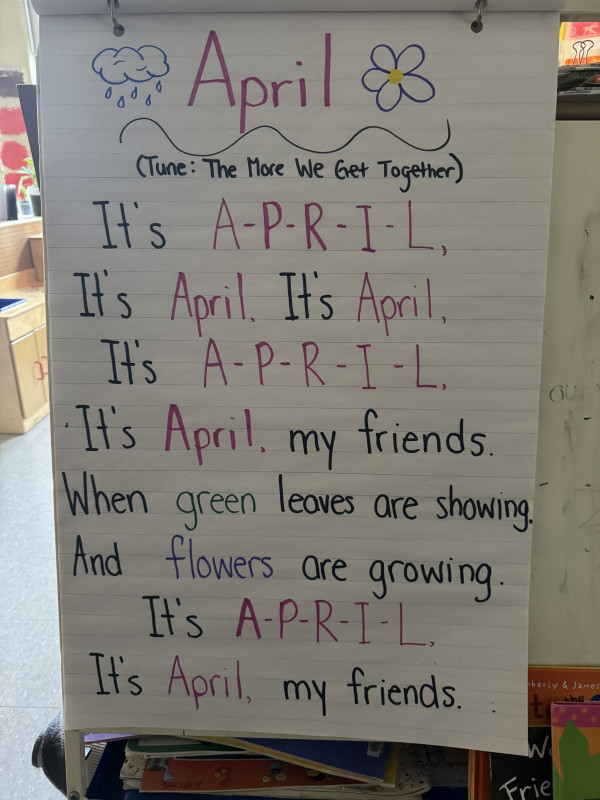 April
(Tune: The More We Get Together)
It's A-P-R-I-L,
It's April. It's April,
It's A-P-R-I-L,
It's April. my friends.
When green leaves are showing.
And flowers are growing.
It's A-P-R-I-L,
It's April, my friends.
& James
the